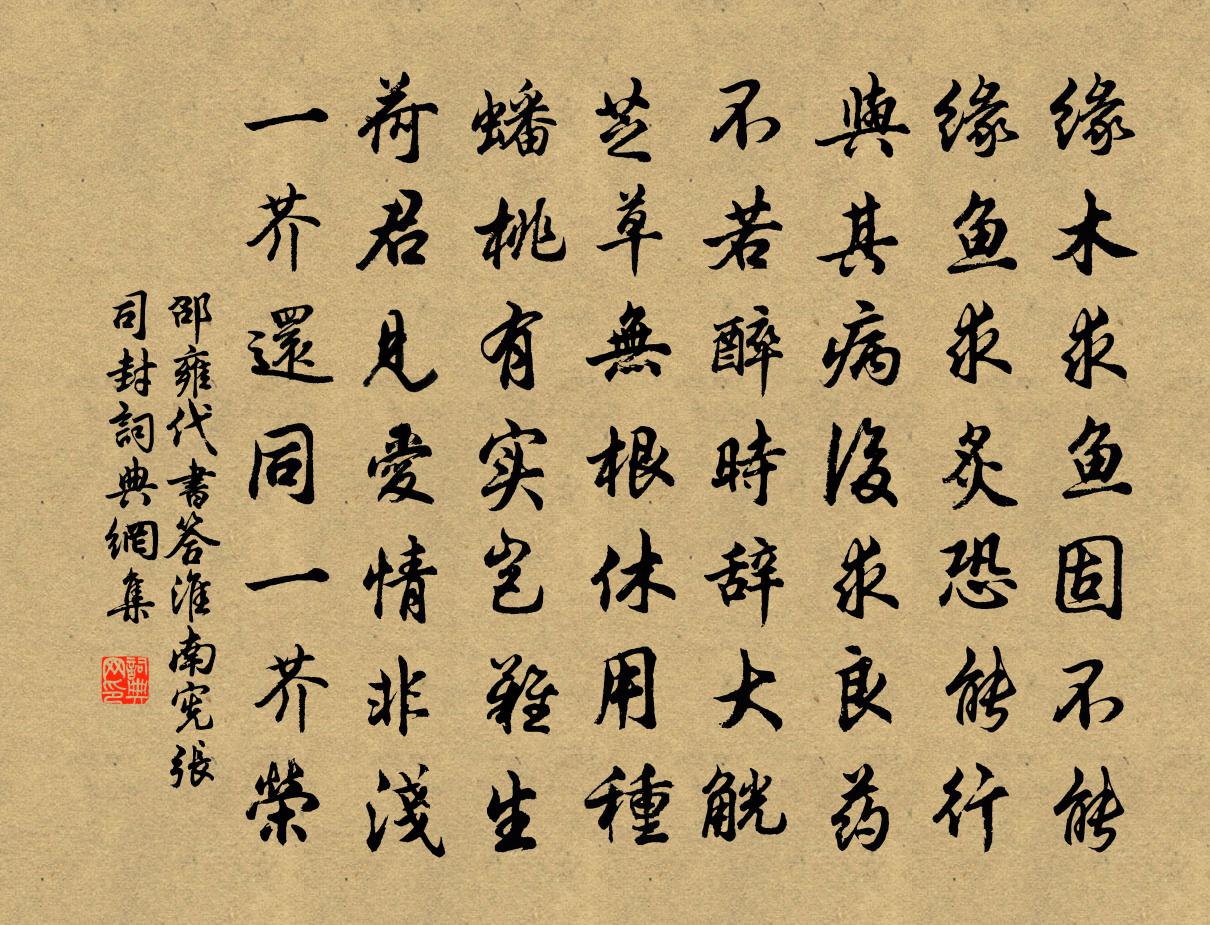 缘木求鱼固不能
缘鱼求炙恐能行
與其病後求良药
不若醉時辞大觥
芝草無根休用種
蟠桃有实岂難生
荷君見愛情非淺
一芥還同一芥榮
邵雍代書答淮南宪張
司封詞典網集
詞典
网印